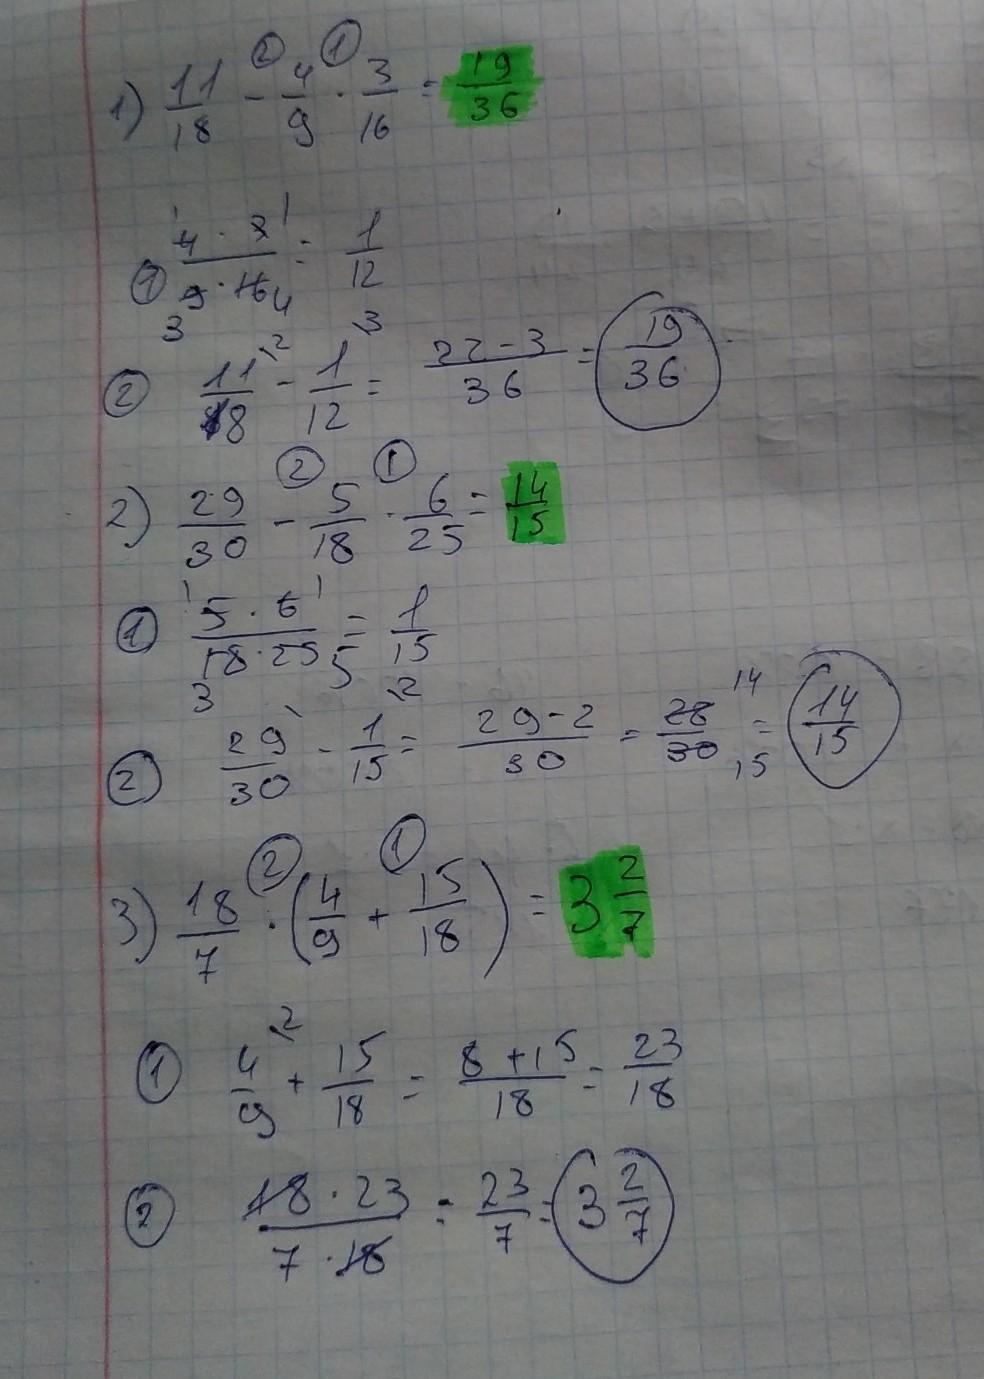 1) 11/18 - 4/9 · 3/16 = 19/36
① 4 · 3 / 9 · 16 = 1/12
② 11/18 - 1/12 = 22 - 3 / 36 = 19/36
2) 29/30 - 5/18 · 6/25 = 14/15
① 5 · 6 / 18 · 25 = 1/15
② 29/30 - 1/15 = 29 - 2 / 30 = 28/30 = 14/15
3) 18/7 · (4/9 + 15/18) = 3 2/7
① 4/9 + 15/18 = 8 + 15 / 18 = 23/18
② 18 · 23 / 7 · 18 = 23/7 = 3 2/7